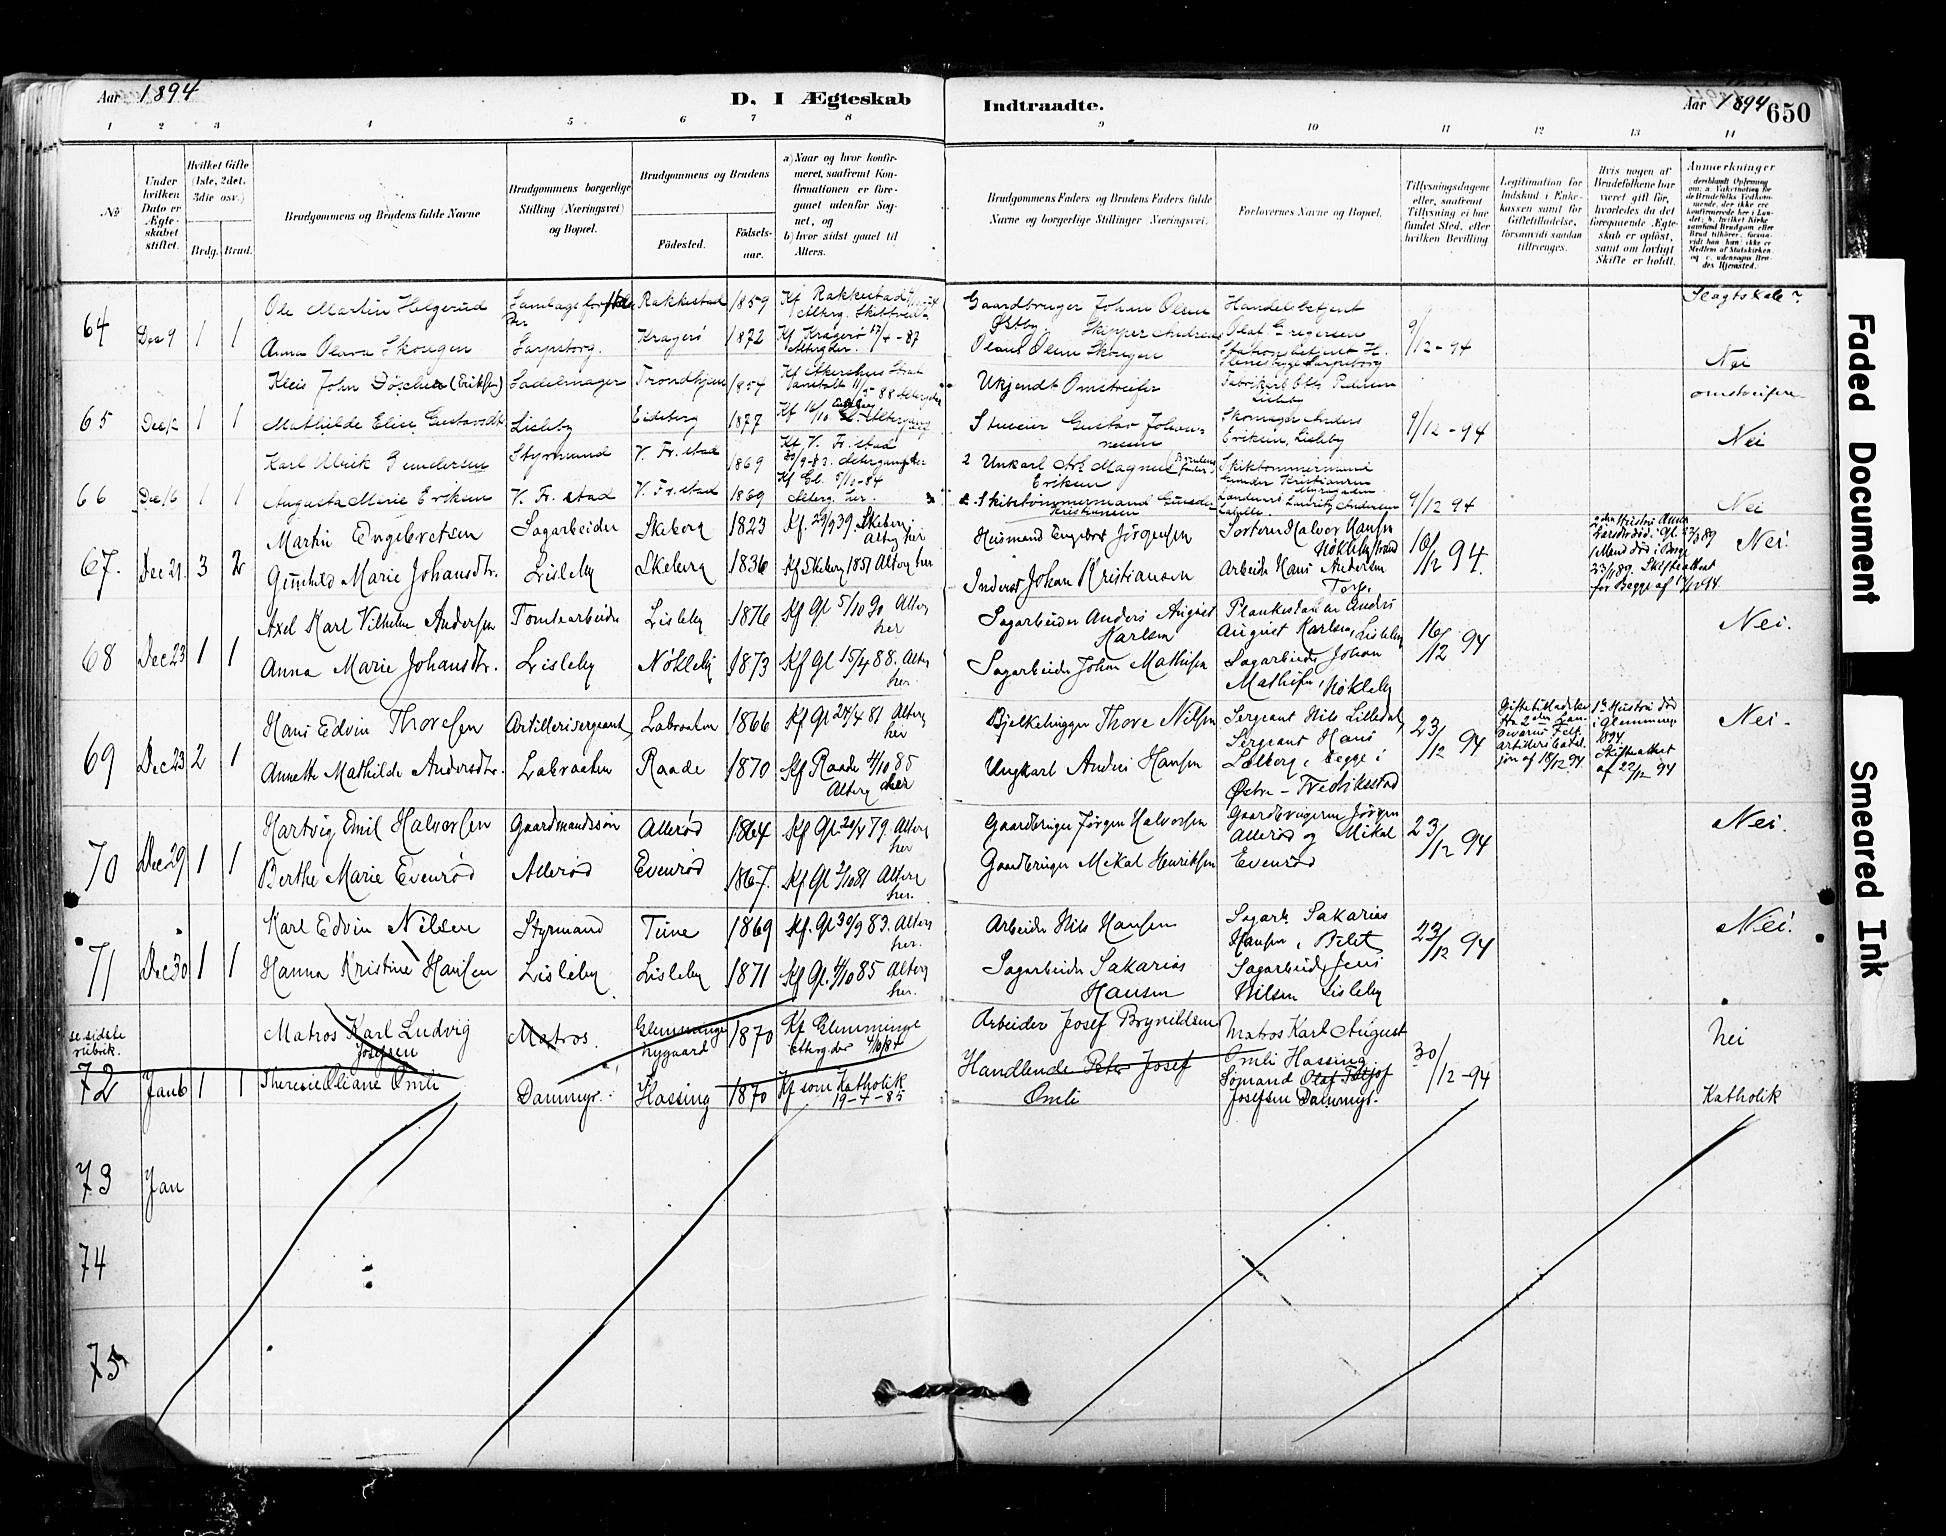 Aar 1894
D. I Ægteskab
Indtraadte.
Aar 1894
650
1 2 3 4 5 6 7 8 9 10 11 12 13 14
No
Under hvilken Dato er Ægteskabet stiftet.
Hvilket Gifte (1ste, 2det, 3die osv.)
Brdg. Brud.
Brudgommens og Brudens fulde Navne
Brudgommens borgerlige Stilling (Næringsvei) og Bopæl.
Brudgommens og Brudens
Fødested.
Fødselsaar.
a) Naar og hvor konfirmeret, saafremt Konfirmationen er foregaaet udenfor Sognet, og
b) hvor sidst gaaet til Alters.
Brudgommens Faders og Brudens Faders fulde Navne og borgerlige Stillinger Næringsvei.
Forlovernes Navne og Bopæl.
Tillysningsdagene eller, saafremt Tillysning ei har fundet Sted, efter hvilken Bevilling
Legitimation for Indskud i Enkekassen samt for Giftetilladelse, forsaavidt saadan tiltrænges.
Hvis nogen af Brudefolkene har været gift før, hvorledes da det foregaaende Ægteskab er opløst, samt om lovligt Skifte er holdt.
Anmærkninger
64 Dec 9 1 1
Ole Martin Helgerud
Rakkestad 1859
Gaardbruger Johan Olsen Østby.
Handelsbetjent Olaf Gregersen
9/12-94
Anna Olava Skougen
Sarpsborg.
Kragerø 1872
Kf Kragerø 17/4-87
Skipper Andreas Olaus Olsen Skougen
Nei
65 Dec 12 1 1
Kleis John Döscher (Eriksen)
Sadelmager
Trondhjem 1854
Ukjendt Omstreifer
Lisleby
omstreifere
Mathilde Elise Gustavsdtr.
Lisleby
Eidsberg 1877
Stuveier Gustav Johannessen
Skomager Anders Eriksen, Lisleby
9/12-94
Nei
66 Dec 16 1 1
Karl Ulrik Gundersen
Styrmand
V. Fr.stad 1869
Kf V. Fr.stad
2 Unkarl Magnus Eriksen (Brudens fader)
Augusta Marie Eriksen
V. Fr.stad
V. Fr.stad 1869
Alterg. her.
Skibstømmermand Gunder Kristiansen
9/12 94
Nei
67. Dec 21. 3 2
Martin Engebretsen
Sagarbeider
Skeberg 1823
Kf. 29/9 39 Skeberg Alterg her
Husmand Engebret Jörgensen
Sorterer Halvor Hansen Nöklebystrand
16/12 94.
Nei.
Gunhild Marie Johansdtr.
Lisleby
Skeberg 1836
Kf Skeberg 1851 Alterg her
Inderst Johan Kristiansen
Arbeider Hans Andersen Torp.
68 Dec 23 1 1
Axel Karl Vilhelm Andersen
Tomtearbeider
Lisleby 1876
Kf Gl 5/10 90 Alterg her
Sagarbeider Anders August Karlsen
Plankestabler Anders August Karlsen, Lisleby
16/12 94
Nei.
Anna Marie Johansdtr.
Lisleby
Nökleby 1873
Kf Gl 15/4 88. Alterg her.
Sagarbeider Johan Mathisen
Sagarbeider Johan Mathisen, Nökleby
69 Dec 23 2 1
Hans Edvin Thoresen
Artillerisergeant,
Labraaten 1866
Kf Gl 24/4 81 Alterg her
Bjelkehugger Thore Nilsen
Sergeant Nils Lilledal, Sergeant Hans Lolberg, begge i Østre-Fredrikstad
23/12 94
1ste Hustru död i Glemminge 1894 Skifteattest af 22/12 94
Nei.
Annette Mathilde Andersdtr.
Labraaten
Raade 1870
Kf Raade 4/10 85 Alterg her
Ungkarl Anders Hansen
70 Dec 29 1 1
Hartvig Emil Halvorsen
Gaardmandssön
Allerød 1864
Kf Gl. 20/4 79. Alterg her
Gaardbruger Jörgen Halvorsen
Gaardbrugerne Jörgen Allerød og Mikal Evenrød
23/12 94
Nei.
Berthe Marie Evenrød
Allerød
Evenrød 1867.
Kf Gl 2/10 81 Alterg her.
Gaardbruger Mikal Henriksen
71 Dec 30 1 1
Karl Edvin Nilsen
Styrmand
Tune 1869
Kf. Gl 30/9 83. Alterg her.
Arbeider Nils Hansen
Sagarb. Sakarias Hansen, Belet
23/12 94
Nei.
Hanna Kristine Hansen
Lisleby
Lisleby 1871
Kf Gl. 4/10 85 Alterg her.
Sagarbeider Sakarias Hansen
Sagarbeider Jens Nilsen Lisleby
se sidste rubrik.
72 Jan 6 1 1
Matros Karl Ludvig Josefsen
Matros.
Glemminge nygaard 1870
Kf Glemminge
Arbeider Josef Brynildsen
Matros Karl August Omli Hassing
30/12-94
Nei
Theresie Oliane Omli
Dammyr.
Hassing 1870
Kf som Katholik 19-4-85
Handlende Peter Josef Omli
Sömand Olaf Josefsen Dammyr.
Katholik
73 Jan
74
75
Faded Document
Smeared Ink